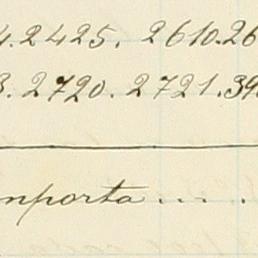 4.2425. 2610.26
3.2720.2721.39
mporta ....